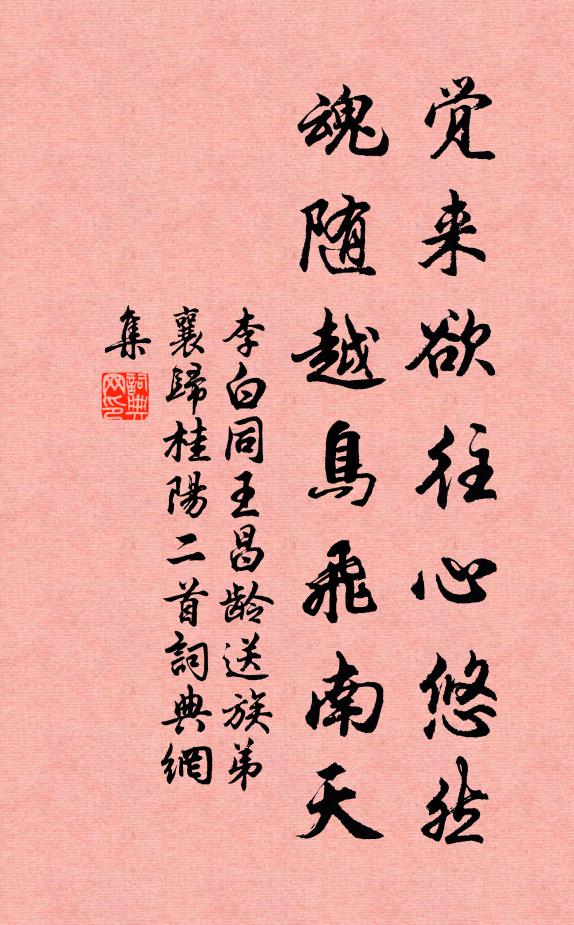 觉来欲往心悠然
魂随越鳥飛南天
李白同王昌龄送族弟
襄歸桂陽二首詞典網
集
詞典网印